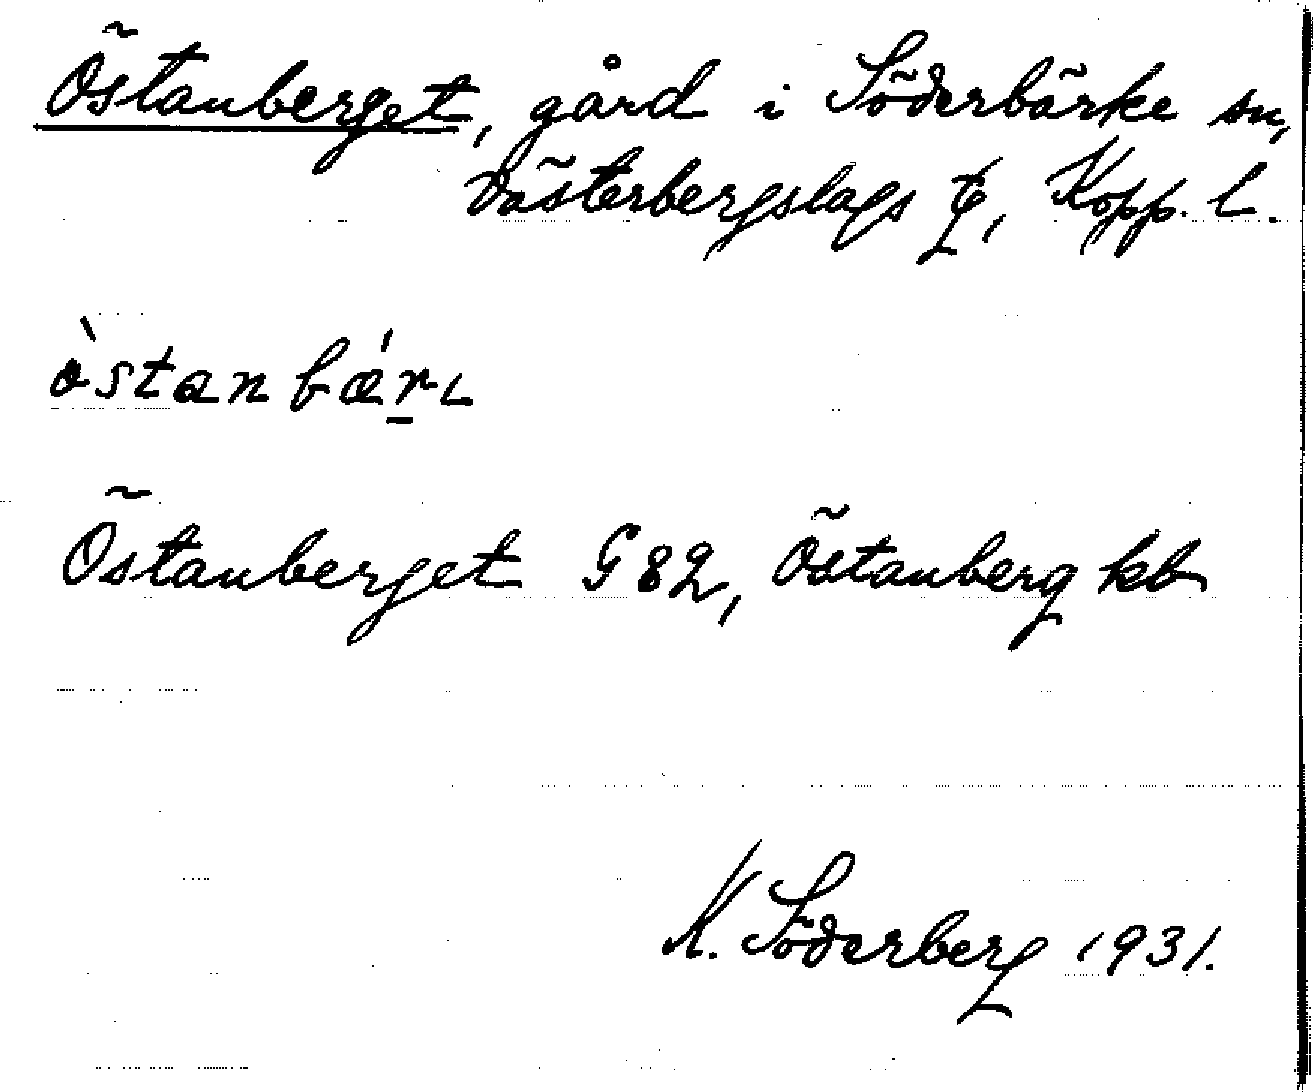 Östanberget, gård i Söderbärke sn,
Västerbergslags tg, Kopp. l.
òstanbǽrɩ
Östanberget G 82, Östanberg kb
K. Söderberg 1931.